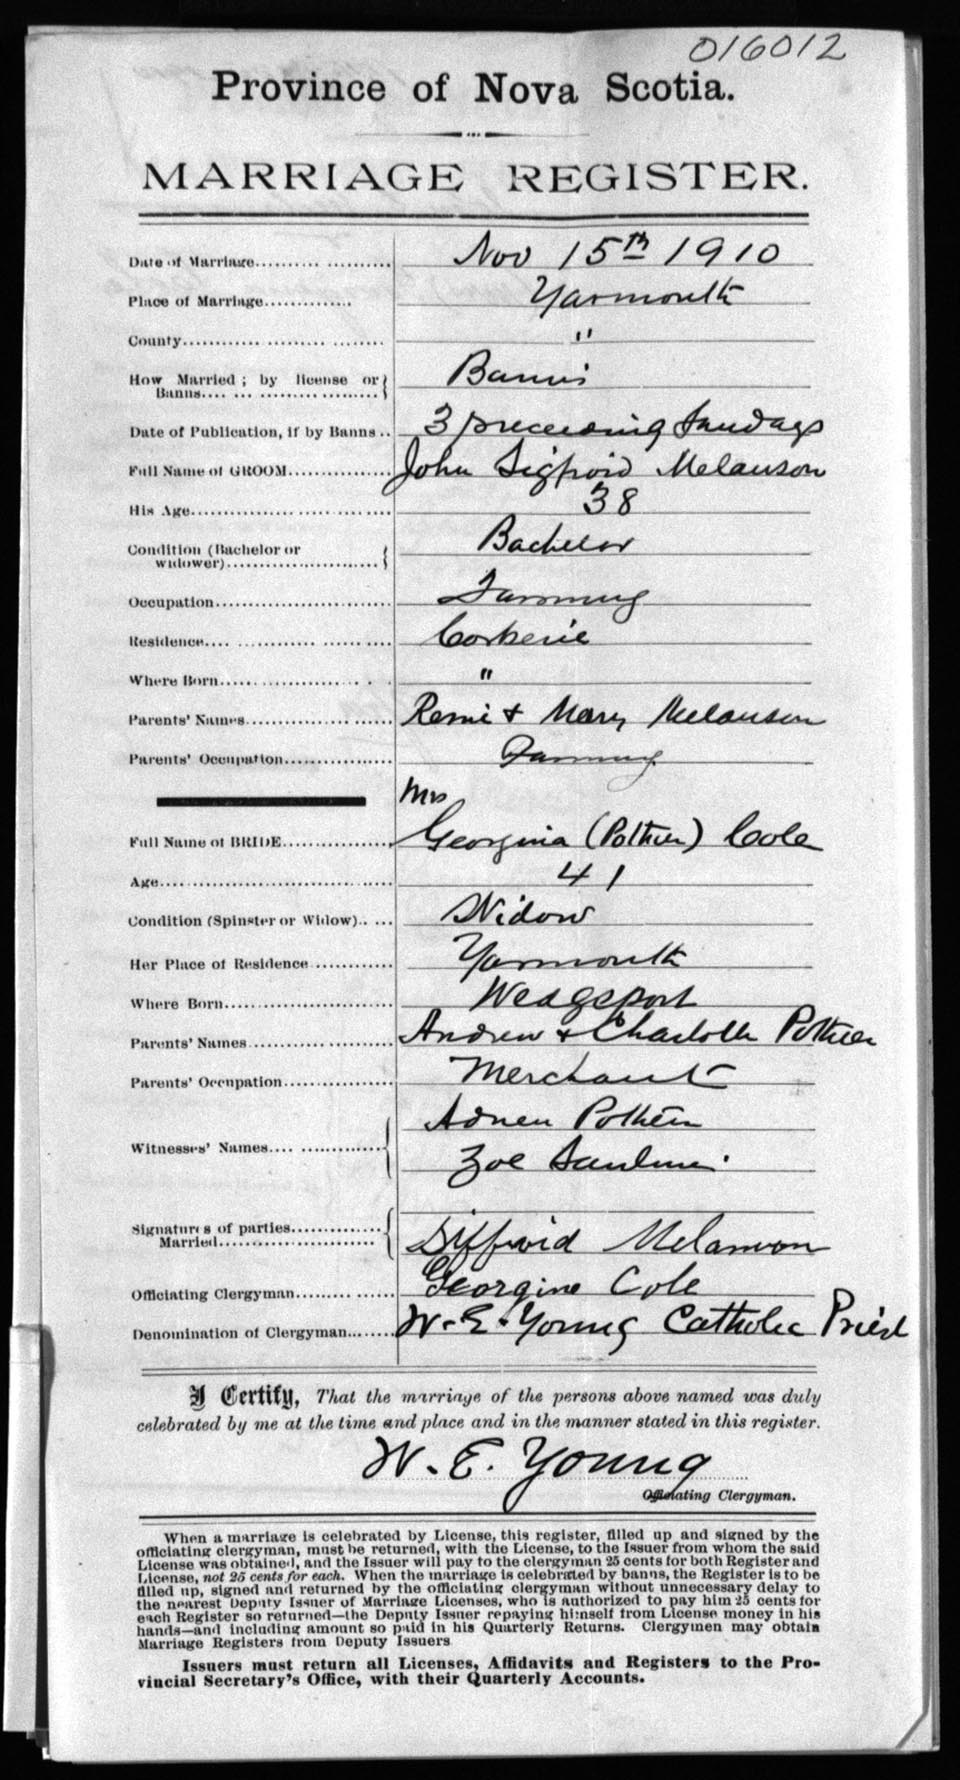 016012
Province of Nova Scotia.
MARRIAGE REGISTER.
Date of Marriage Nov 15th 1910
Place of Marriage Yarmouth
County "
How Married; by license or Banns Banns
Date of Publication, if by Banns 3 preceeding Sundays
Full Name of GROOM John Sigfroid Melanson
His Age 38
Condition (Bachelor or widower) Bachelor
Occupation Farming
Residence Corberie
Where Born "
Parents' Names Remi & Mary Melanson
Parents' Occupation Farming
Mrs
Full Name of BRIDE Georgina (Pothier) Cole
Age 41
Condition (Spinster or Widow) Widow
Her Place of Residence Yarmouth
Where Born Wedgeport
Parents' Names Andrew & Charlotte Pothier
Parents' Occupation Merchant
Pothier
Witnesses' Names Zoe
Signatures of parties
Married Siffroid Melanson
Officiating Clergyman Georgine Cole
Denomination of Clergyman W. E. Young Catholic Priest
I Certify, That the marriage of the persons above named was duly
celebrated by me at the time and place and in the manner stated in this register.
W. E. Young
Officiating Clergyman.
When a marriage is celebrated by License, this register, filled up and signed by the
officiating clergyman, must be returned, with the License, to the Issuer from whom the said
License was obtained, and the Issuer will pay to the clergyman 25 cents for both Register and
License, not 25 cents for each. When the marriage is celebrated by banns, the Register is to be
filled up, signed and returned by the officiating clergyman without unnecessary delay to
the nearest Deputy Issuer of Marriage Licenses, who is authorized to pay him 25 cents for
each Register so returned—the Deputy Issuer repaying himself from License money in his
hands—and including amount so paid in his Quarterly Returns. Clergymen may obtain
Marriage Registers from Deputy Issuers
Issuers must return all Licenses, Affidavits and Registers to the Pro-
vincial Secretary's Office, with their Quarterly Accounts.